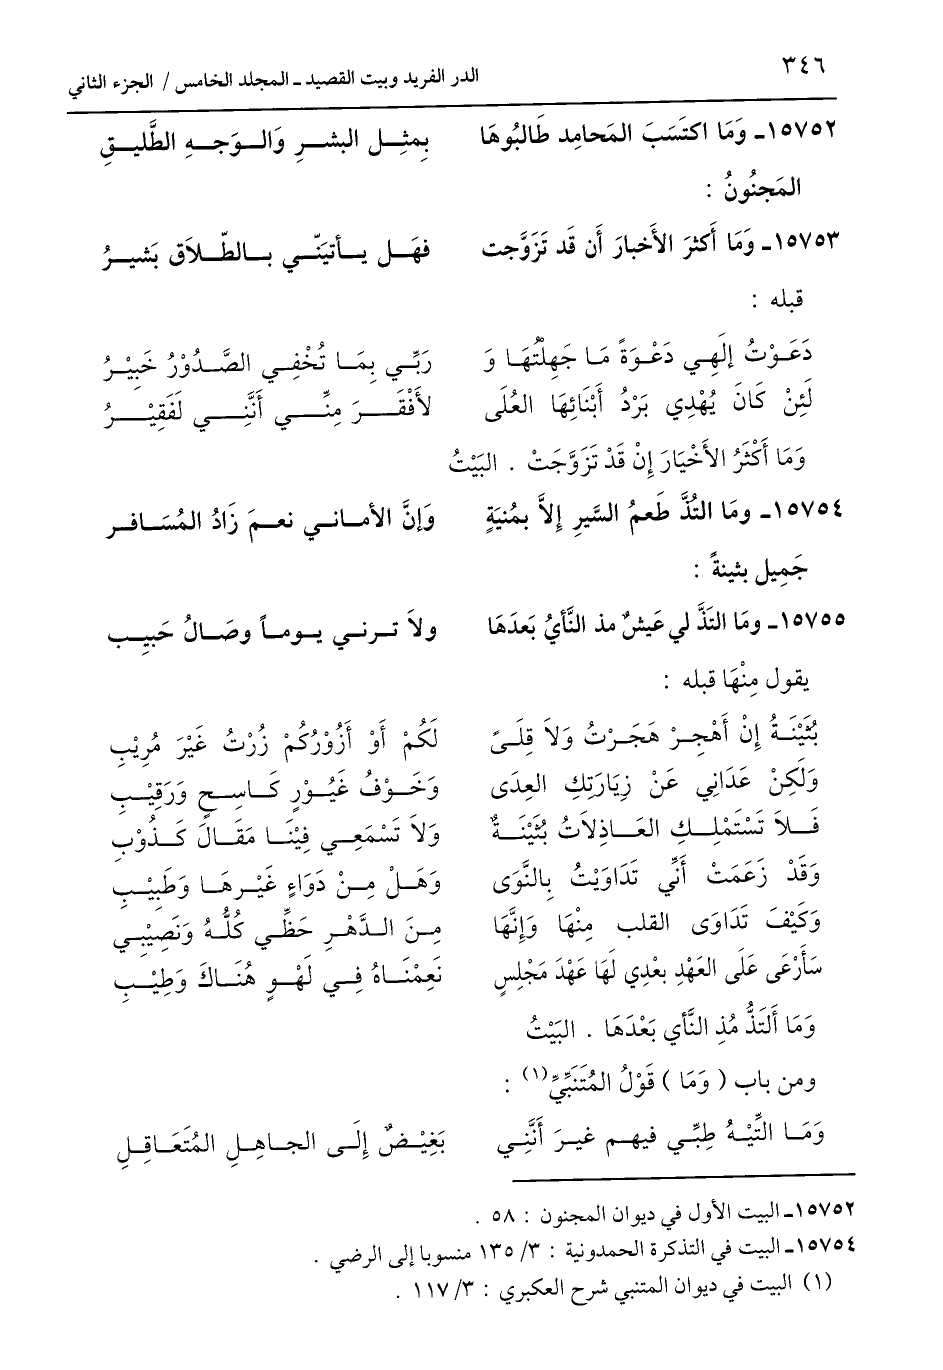 ٣٤٦
الدر الفريد وبيت القصيد ـ المجلد الخامس / الجزء الثاني
١٥٧٥٢ـ وَمَا اكتَسَبَ المَحامِد طَالبُوهَا بِمثِـل البشـرِ وَالـوَجـهِ الطَّليـقِ
المَجنُونُ :
١٥٧٥٣ـ وَمَا أَكثرَ الأَخبارَ أَن قَد تَزَوَّجت فهَـل يـأتيَنّـي بـالطّـلاَق بَشيـرُ
قبله :
دَعَوْتُ إِلَهِي دَعْوَةً مَا جَهِلْتُهَا وَ رَبِّـي بِمَـا تُخْفِـي الصُّـدُوْرُ خَبِيْـرُ
لَئِنْ كَانَ يُهْدِي بَرْدُ أَبْنَائِهَا العُلَى لأَفْقَـرَ مِنِّـي أَنَّنِـي لَفَقِيْـرُ
وَمَا أَكْثَرُ الأَخْيَارَ إِنْ قَدْ تَزَوَّجَتْ . البَيْتُ
١٥٧٥٤ـ ومَا التُذَّ طَعمُ السَّيرِ إلاَّ بمُنيَةٍ وَإنَّ الأمـانـي نعـمَ زَادُ المُسَـافـر
جَمِيل بثينةً :
١٥٧٥٥ـ ومَا التَذَّ لي عَيشٌ مذ النَّأيُ بَعدَهَا ولاَ تـرنـي يـومـاً وصَـالُ حَبِيـب
يقول مِنْهَا قبله :
بُثَيْنَـةُ إِنْ أَهْجِـرْ هَجَـرْتُ وَلاَ قِلَـىً لَكُمْ أَوْ أَزُوْرُكُمْ زُرْتُ غَيْرَ مُرِيْبِ
وَلَكِنْ عَدَانِي عَنْ زِيَارَتِكِ العِدَى وَخَـوْفُ غَيُـوْرٍ كَـاسِـحٍ وَرَقِيْـبِ
فَـلاَ تَسْتَمْلِـكِ العَـاذِلاَتُ بُثَيْنَـةٌ وَلاَ تَسْمَعِـي فِيْنَـا مَقَـالَ كَـذُوْبِ
وَقَدْ زَعَمَتْ أَنِّي تَدَاوَيْتُ بِالنَّوَى وَهَـلْ مِـنْ دَوَاءٍ غَيْـرِهَـا وَطَبِيْـبِ
وَكَيْفَ تَدَاوَى القلب مِنْهَا وَإِنَّهَا مِـنَ الـدَّهْـرِ حَظِّـي كُلُّـهُ وَنَصِيْبِـي
سَأَرْعَى عَلَى العَهْدِ بعْدِي لَهَا عَهْدَ مَجْلِسٍ نَعِمْنَـاهُ فِـي لَهْـوٍ هُنَـاكَ وَطِيْـبِ
وَمَا أَلتَذُّ مُذِ النَّأي بَعْدَهَا . البَيْتُ
ومن باب ( وَمَا ) قَوْلُ المُتَنَبِّيِّ(١) :
وَمَـا التِّيْـهُ طِبِّـي فيهـم غيـرَ أَنَّنِـي بَغِيْـضٌ إِلَـى الجـاهِـلِ المُتَعَـاقِـلِ
١٥٧٥٢ـ البيت الأول في ديوان المجنون : ٥٨ .
١٥٧٥٤ـ البيت في التذكرة الحمدونية : ٣/ ١٣٥ منسوبا إلى الرضي .
(١) البيت في ديوان المتنبي شرح العكبري : ٣/ ١١٧ .